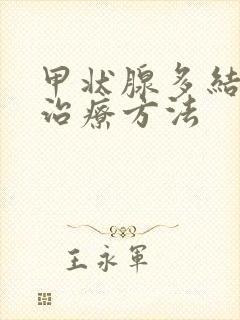 甲状腺多結
治療方法
王永軍